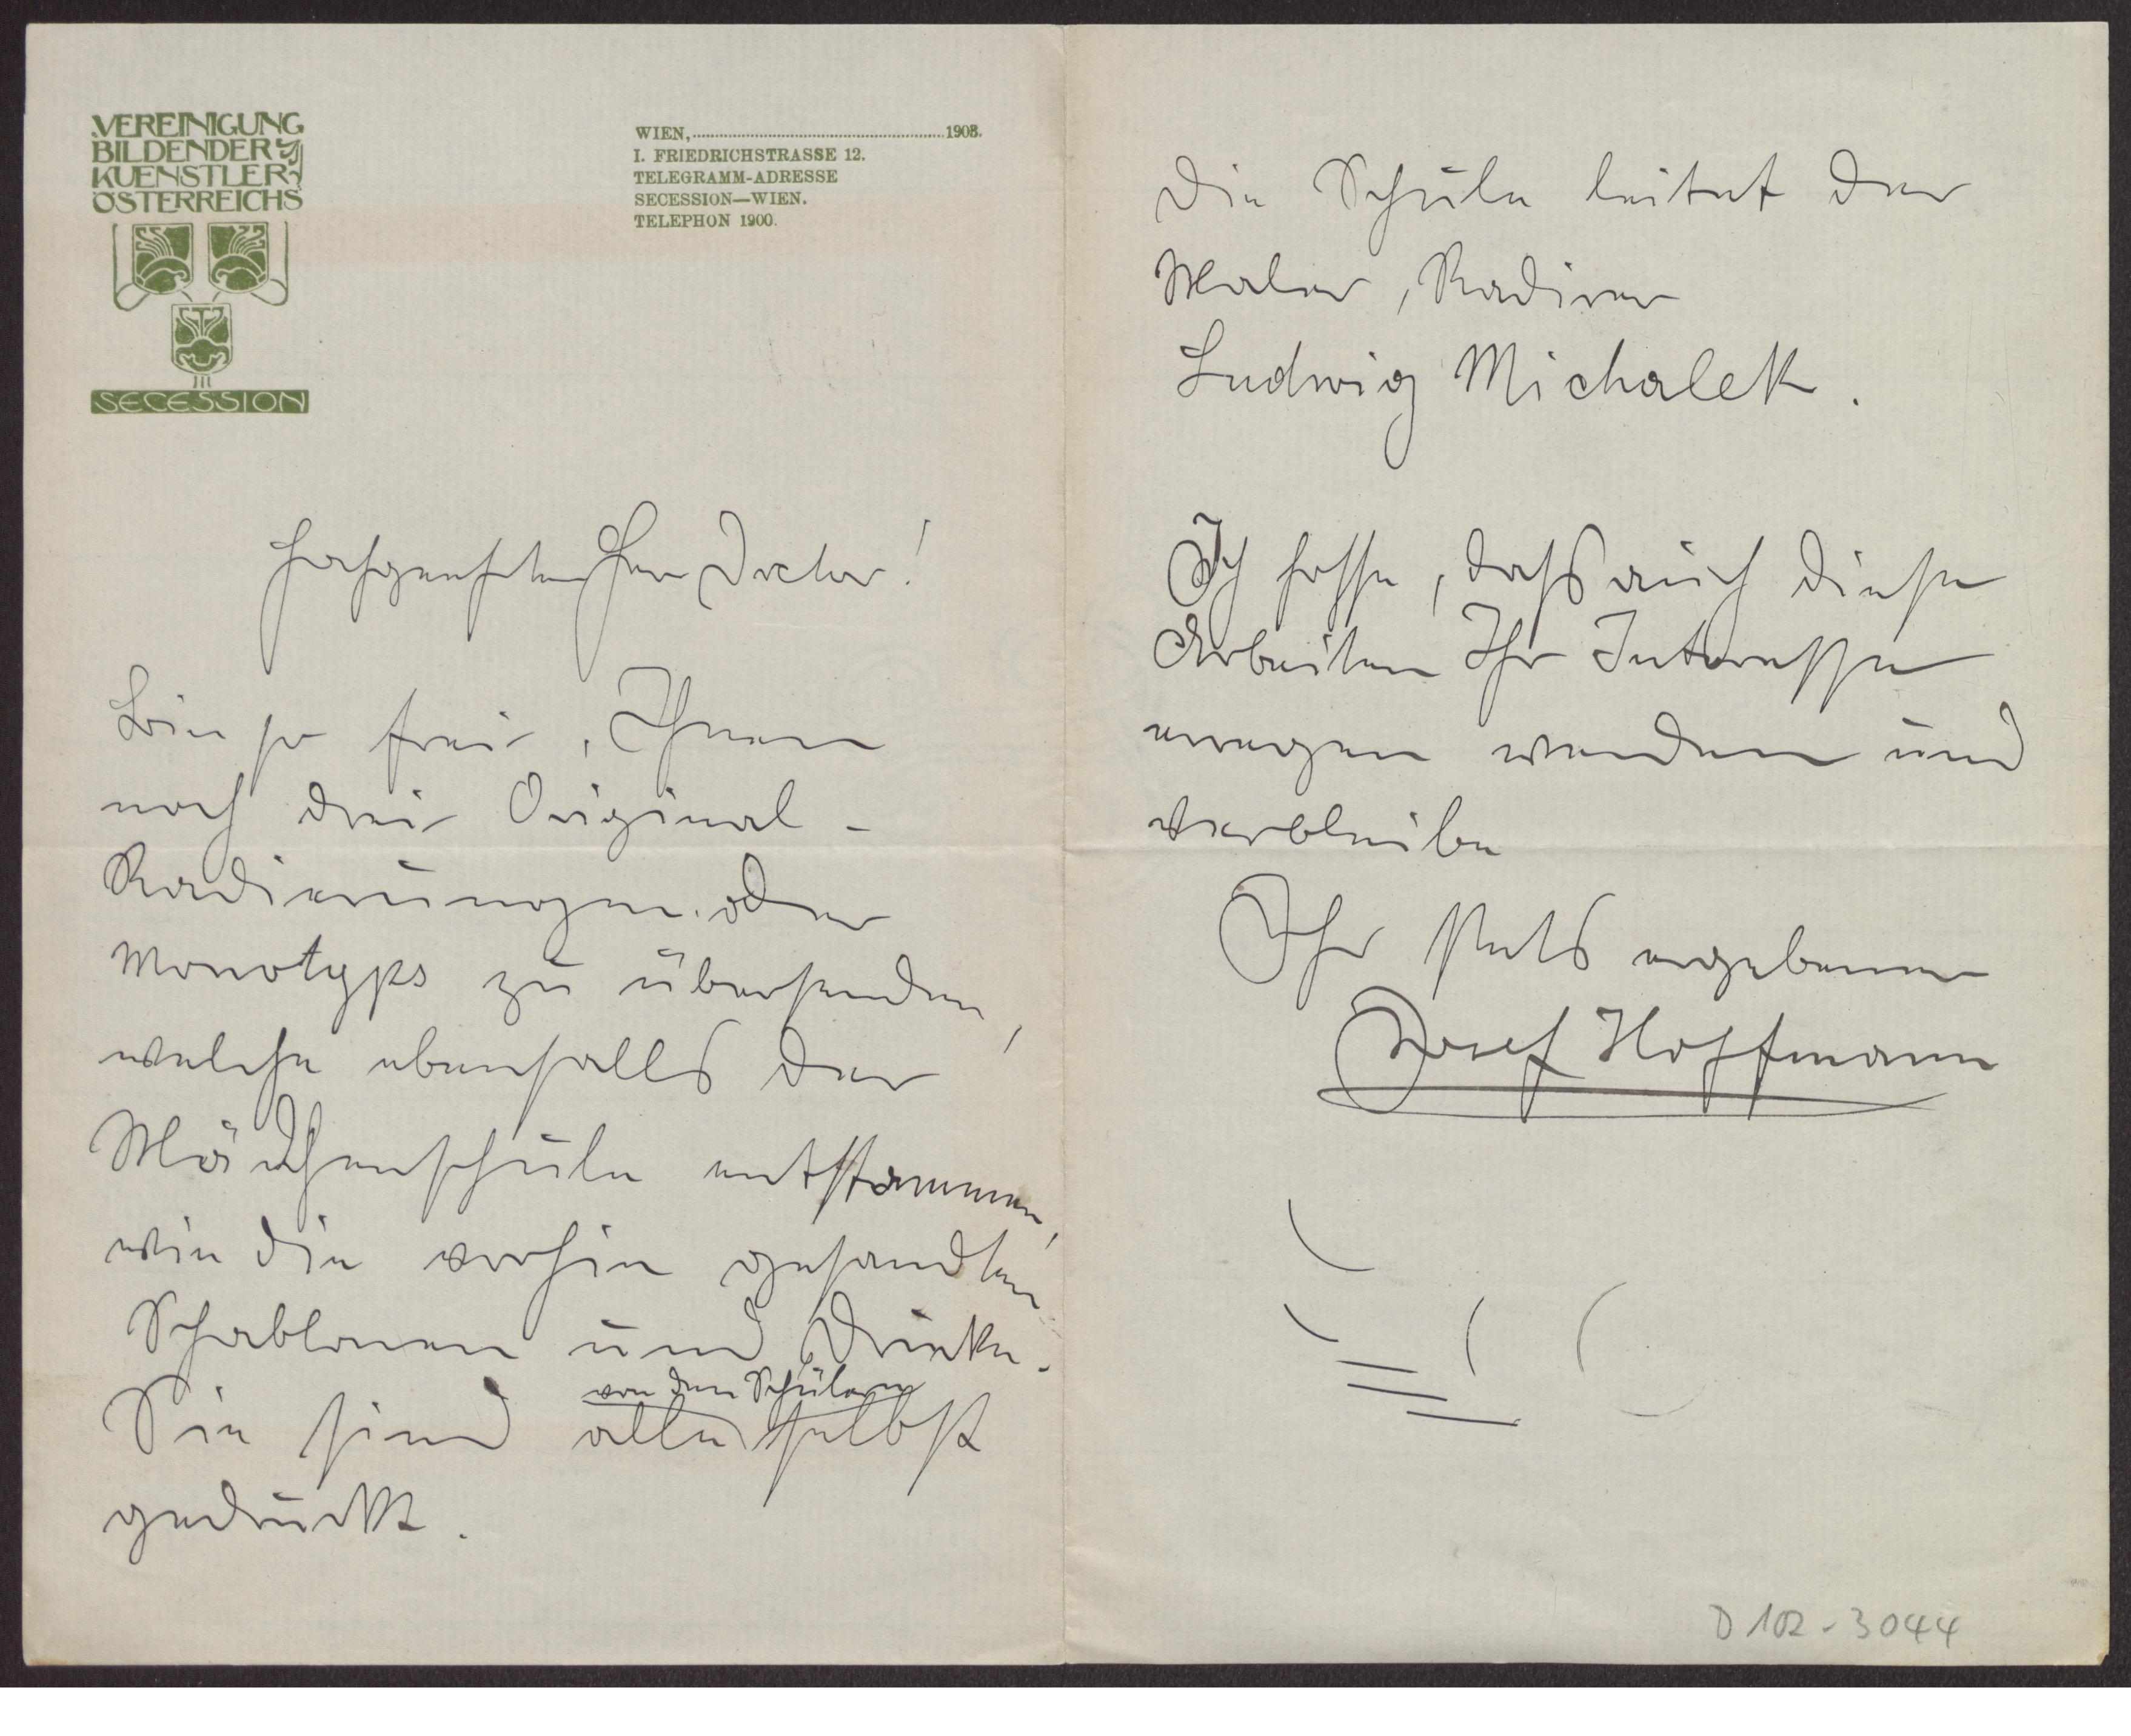 VEREINIGUNG
BILDENDER
KUENSTLER
ÖSTERREICHS
SECESSION
WIEN, 1903.
I. FRIEDRICHSTRASSE 12.
TELEGRAMM-ADRESSE
SECESSION—WIEN.
TELEPHON 1900.
Hochgeehrter Herr Doctor!
Bin so frei, Ihnen
noch drei Original-
Radierungen oder
Monotyps zu übersenden,
welche ebenfalls der
Mädchenschule entstammen,
wie die vorhin gesandten
Schablonen und Drucke.
von den Schülern
Sie sind alle selbst
gedruckt.
Die Schule leitet der
Maler, Radirer
Ludwig Michalek.
Ich hoffe, dass auch diese
Arbeiten Ihr Interesse
erregen werden und
verbleibe
Ihr stets ergebener
Josef Hoffmann
D 102-3044